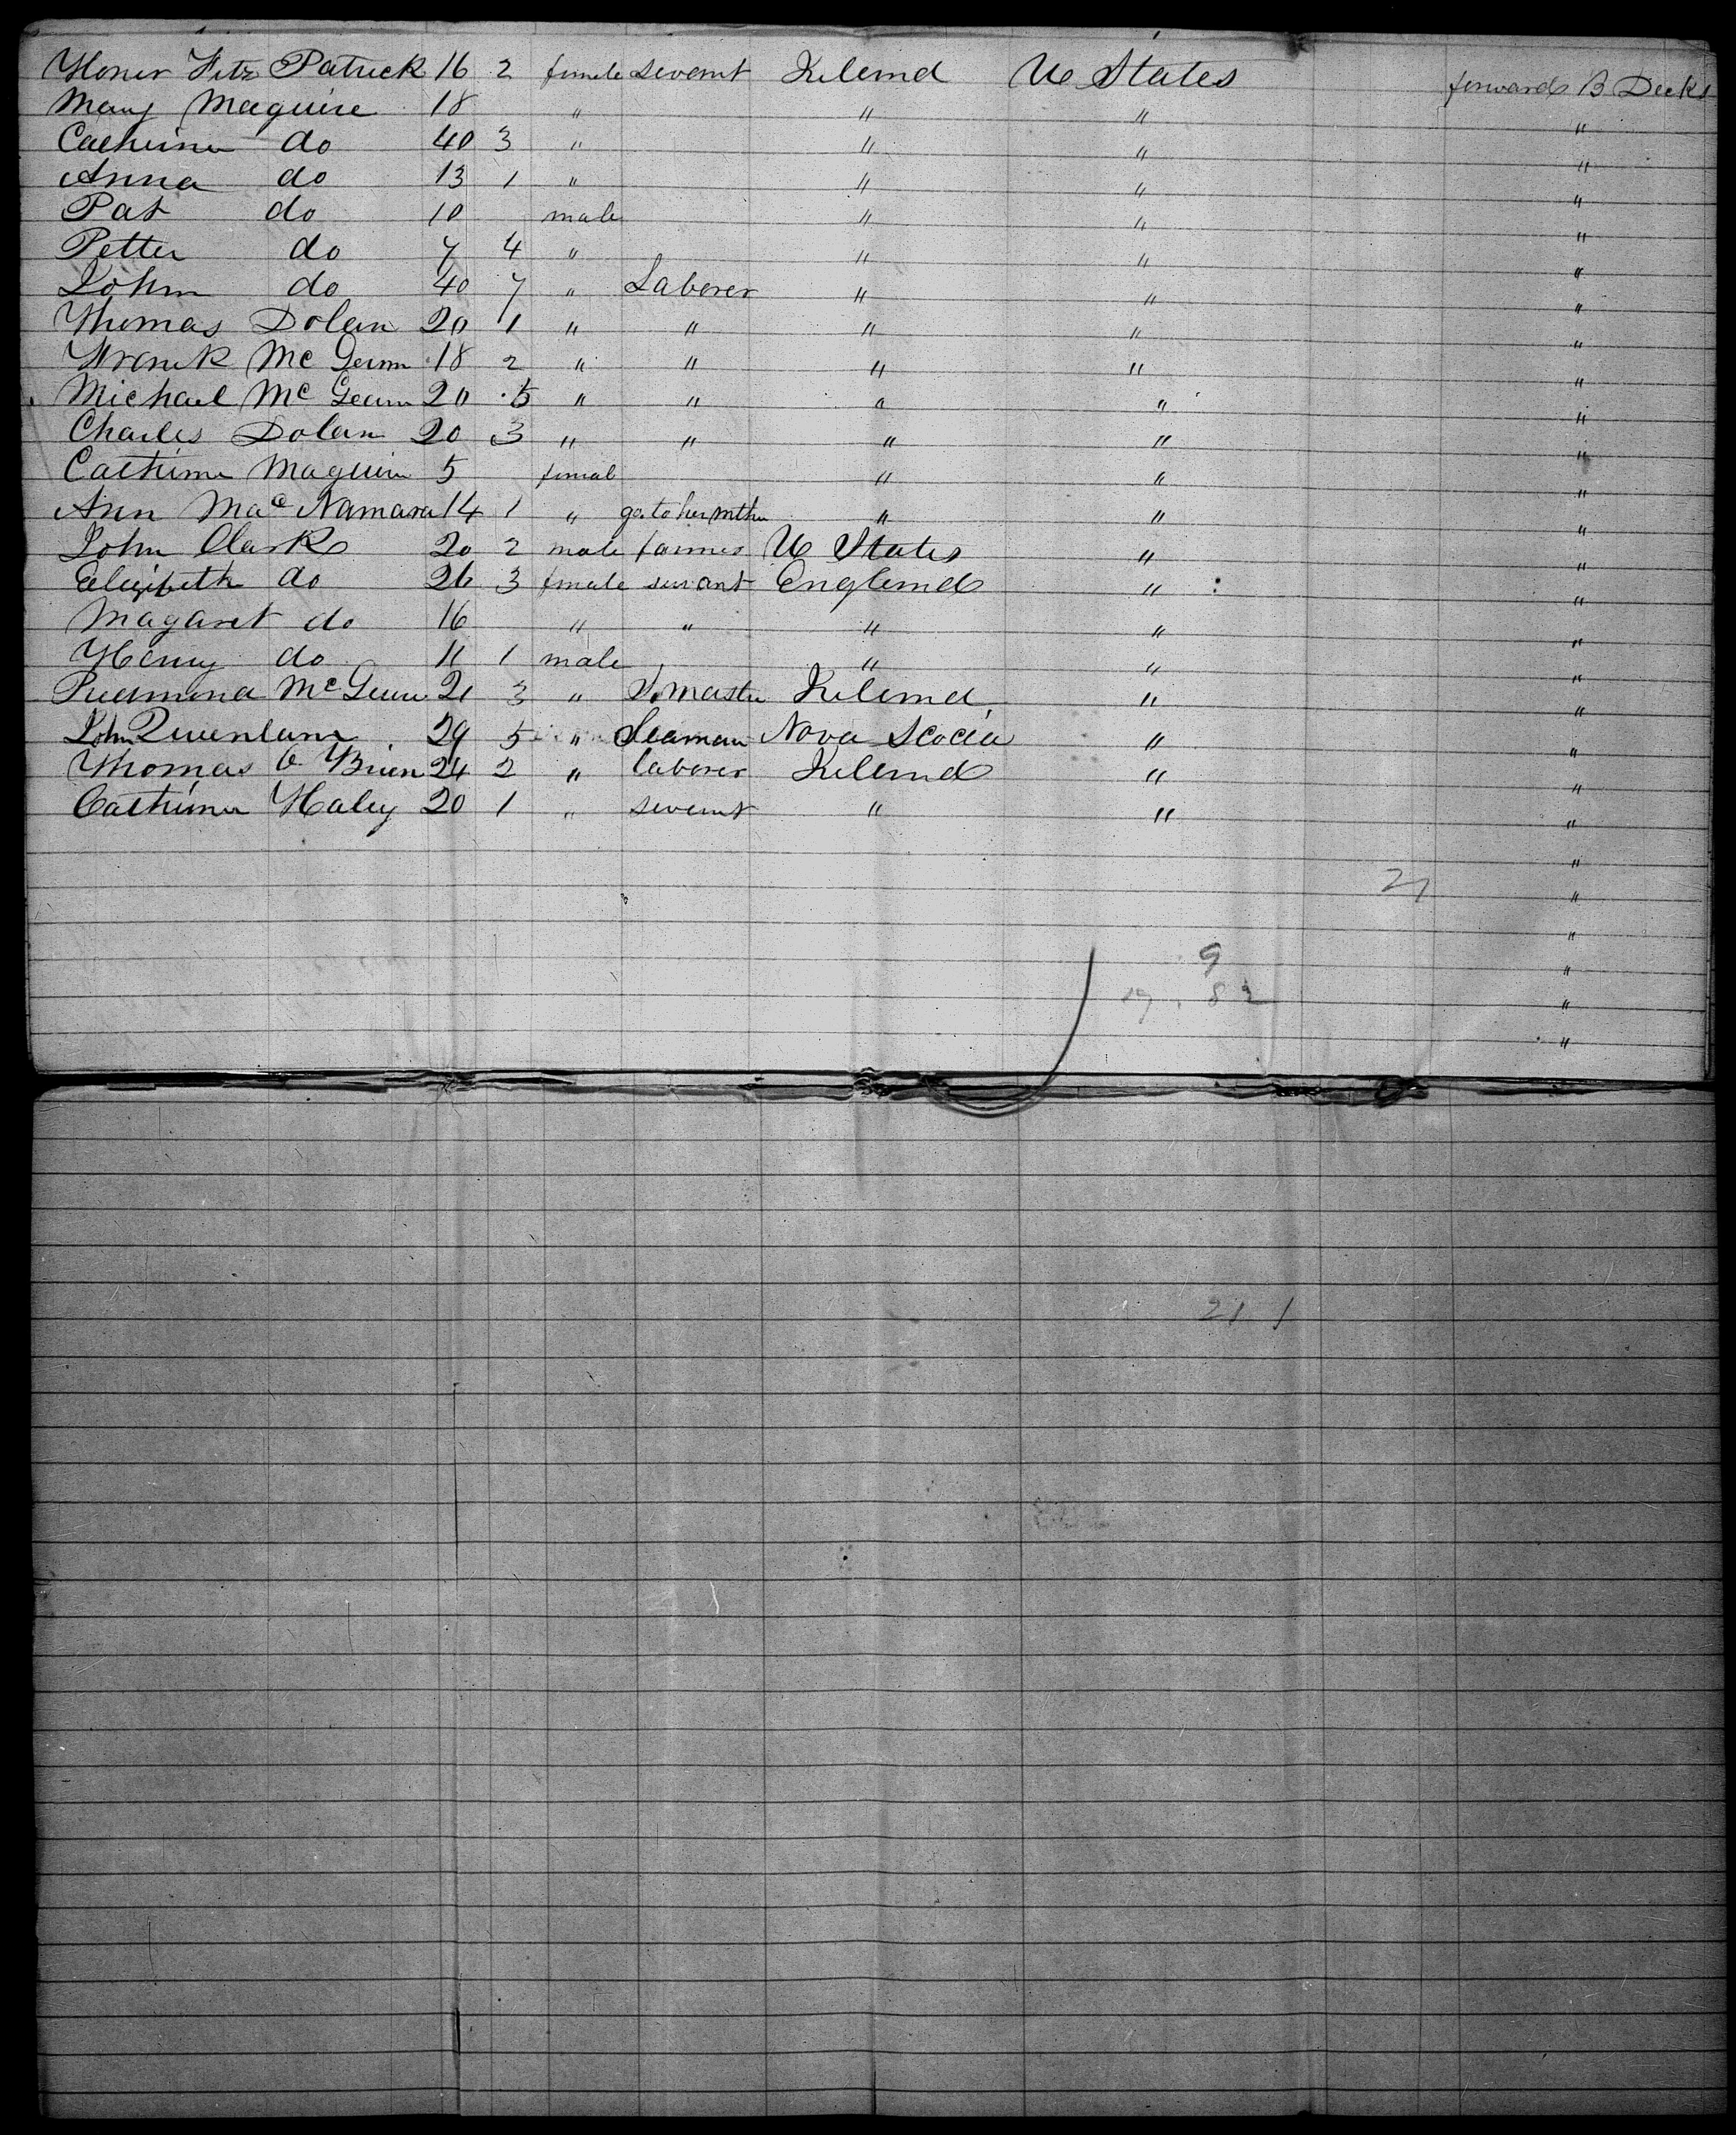 Honer Fitz Patrick 16 2 female servant Ireland U States forward B Decks
Mary Maguire 18 " " " "
Catherine do 40 3 " " " "
Anna do 13 1 " " " "
Pat do 10 male " " "
Petter do 7 4 " " " "
John do 40 7 " Laborer " " "
Thomas Dolan 20 1 " " " " "
Frank Mc 18 2 " " " " "
Michael Mc 20 5 " " " " "
Charles Dolan 20 3 " " " " "
Catherine Maguire 5 female " " "
Ann Mac Namara 14 1 " go to her mother " " "
John Clark 20 2 male farmer U States " "
Elizibeth do 26 3 female servant England " "
Magaret do 16 " " " " "
Henry do 11 1 male " " "
Redmond Mc 21 3 " Ireland " "
John Quenlan 29 5 " Seaman Nova Scocia " "
Thomas O Brien 24 2 " laborer Ireland " "
Catherine Haley 20 1 " servant " " "
"
21 "
"
9 "
82 "
"
21 1